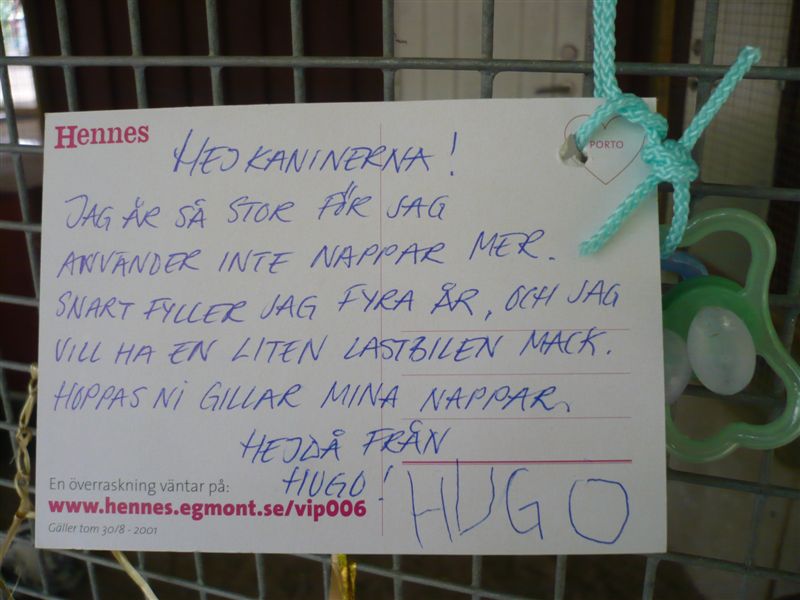 Hennes
PORTO
HEJ KANINERNA!
JAG ÄR SÅ STOR FÖR JAG
ANVÄNDER INTE NAPPAR MER.
SNART FYLLER JAG FYRA ÅR, OCH JAG
VILL HA EN LITEN LASTBILEN MACK.
HOPPAS NI GILLAR MINA NAPPAR.
HEJDÅ FRÅN
HUGO! HUGO
En överraskning väntar på:
www.hennes.egmont.se/vip006
Gäller tom 30/8 - 2001